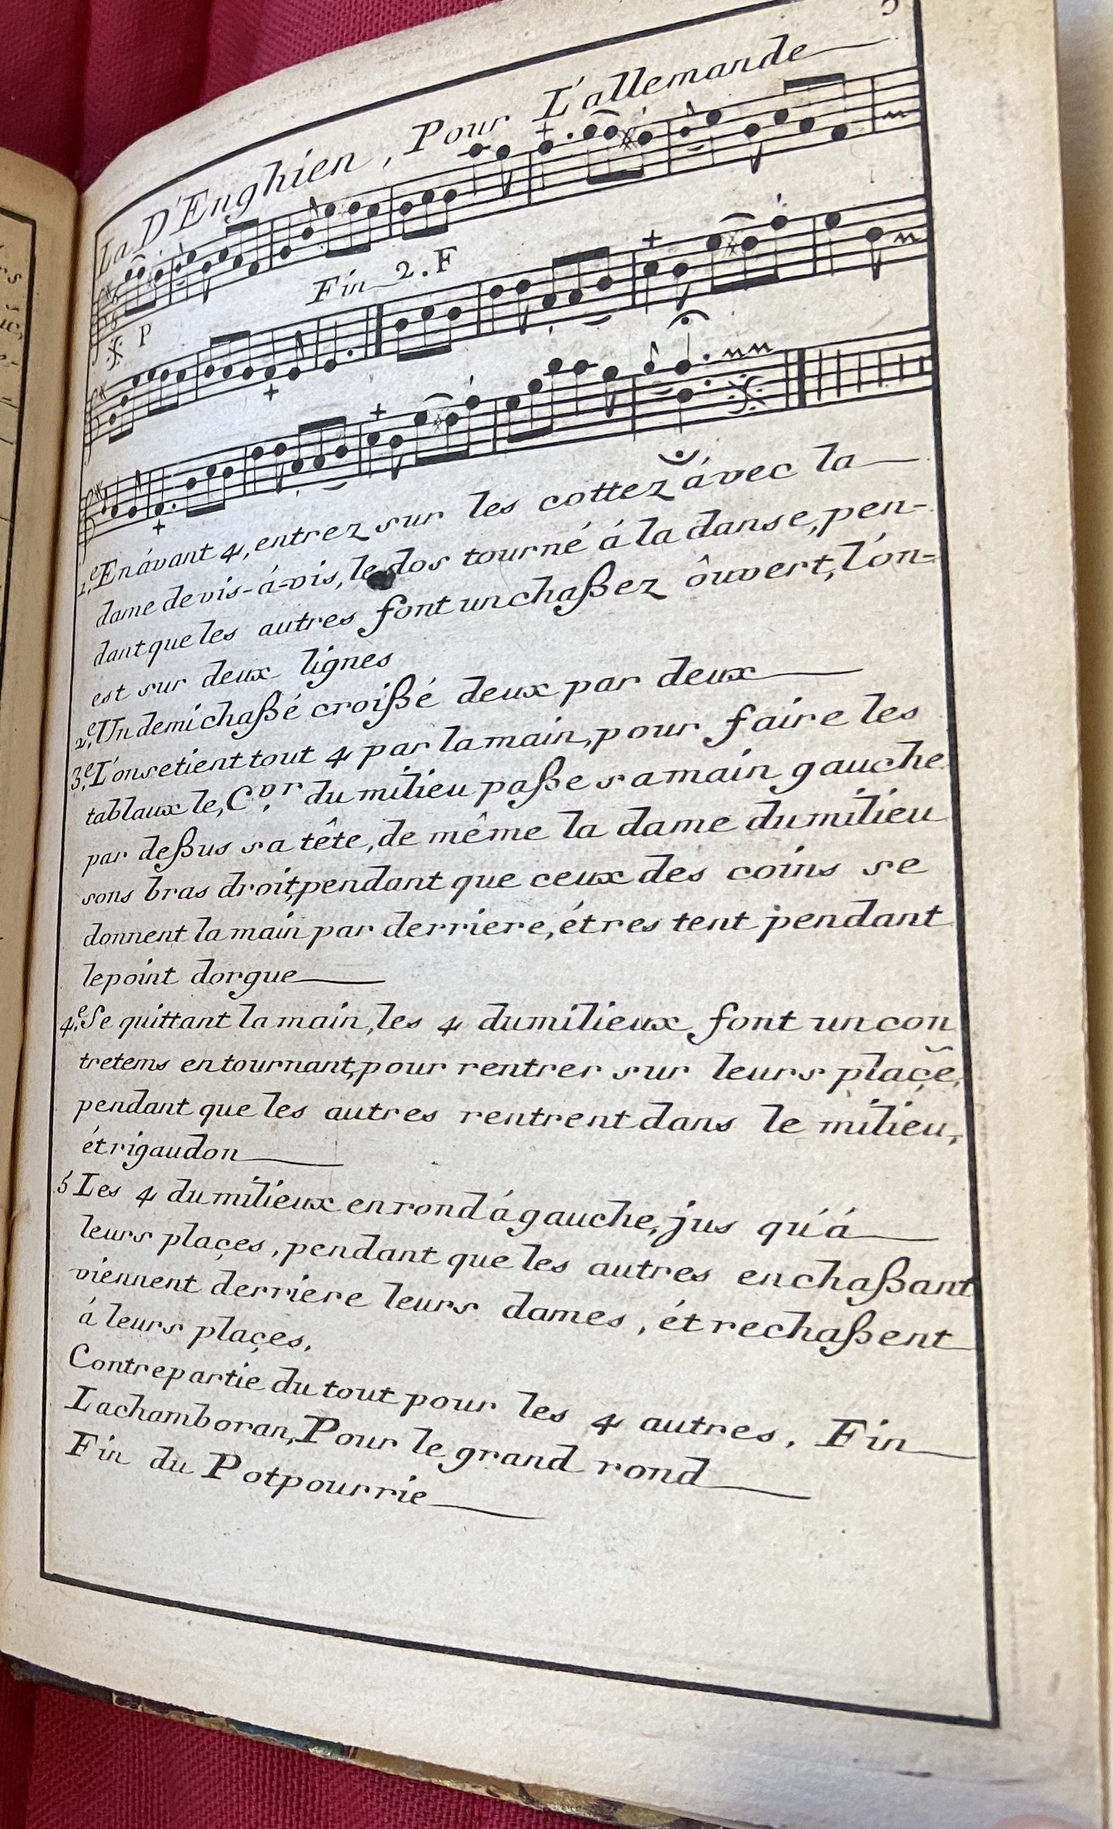 5
La D'Enghien, Pour L'allemande
P
Fin 2.F
1.e En ávant 4, entrez sur les cottez ávec la
dame de vis-á-vis, le dos tourné á la danse, pen-
dant que les autres font un chaßez ôuvert, l'ón-
est sur deux lignes
2.e Un demi chaßé croißé deux par deux
3.e L'on se tient tout 4 par la main, pour faire les
tablaux le, C.vr du milieu paße sa main gauche
par deßus sa tête, de même la dame du milieu
sons bras droit, pendant que ceux des coins se
donnent la main par derriere, ét res tent pendant
le point dorgue
4.e Se quittant la main, les 4 du milieux font un con
tretems en tournant, pour rentrer sur leurs plaçe,
pendant que les autres rentrent dans le milieu,
ét rigaudon
5 Les 4 du milieux en rond á gauche, jus qu'á
leurs plaçes, pendant que les autres en chaßant
viennent derriere leurs dames, ét rechaßent
á leurs plaçes,
Contrepartie du tout pour les 4 autres. Fin
La chamboran, Pour le grand rond
Fin du Potpourrie